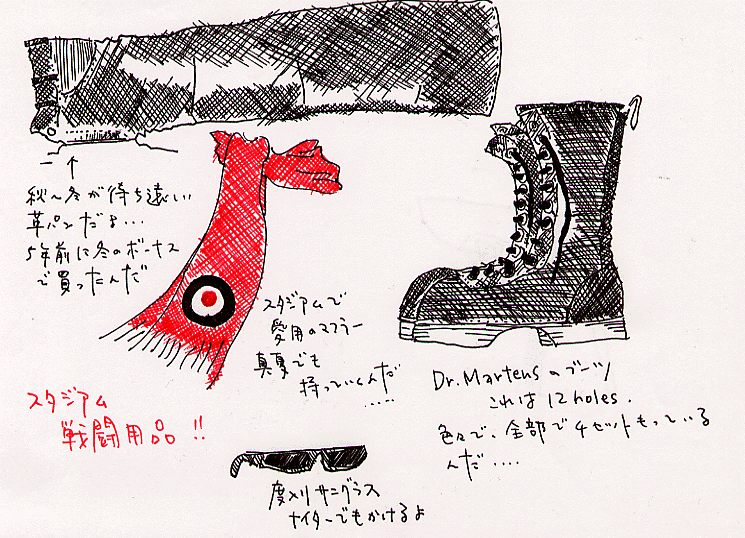 秋〜冬が待ち遠しい
革パンだよ...
5年前に冬のボーナス
で買ったんだ
スタジアムで
愛用のマフラー
真夏でも
持っていくんだ
.....
スタジアム
戦闘用品!!
Dr. Martensのブーツ
これは12holes.
色々で、全部で4セットもっている
んだ....
度メリサングラス
ナイターでもかけるよ